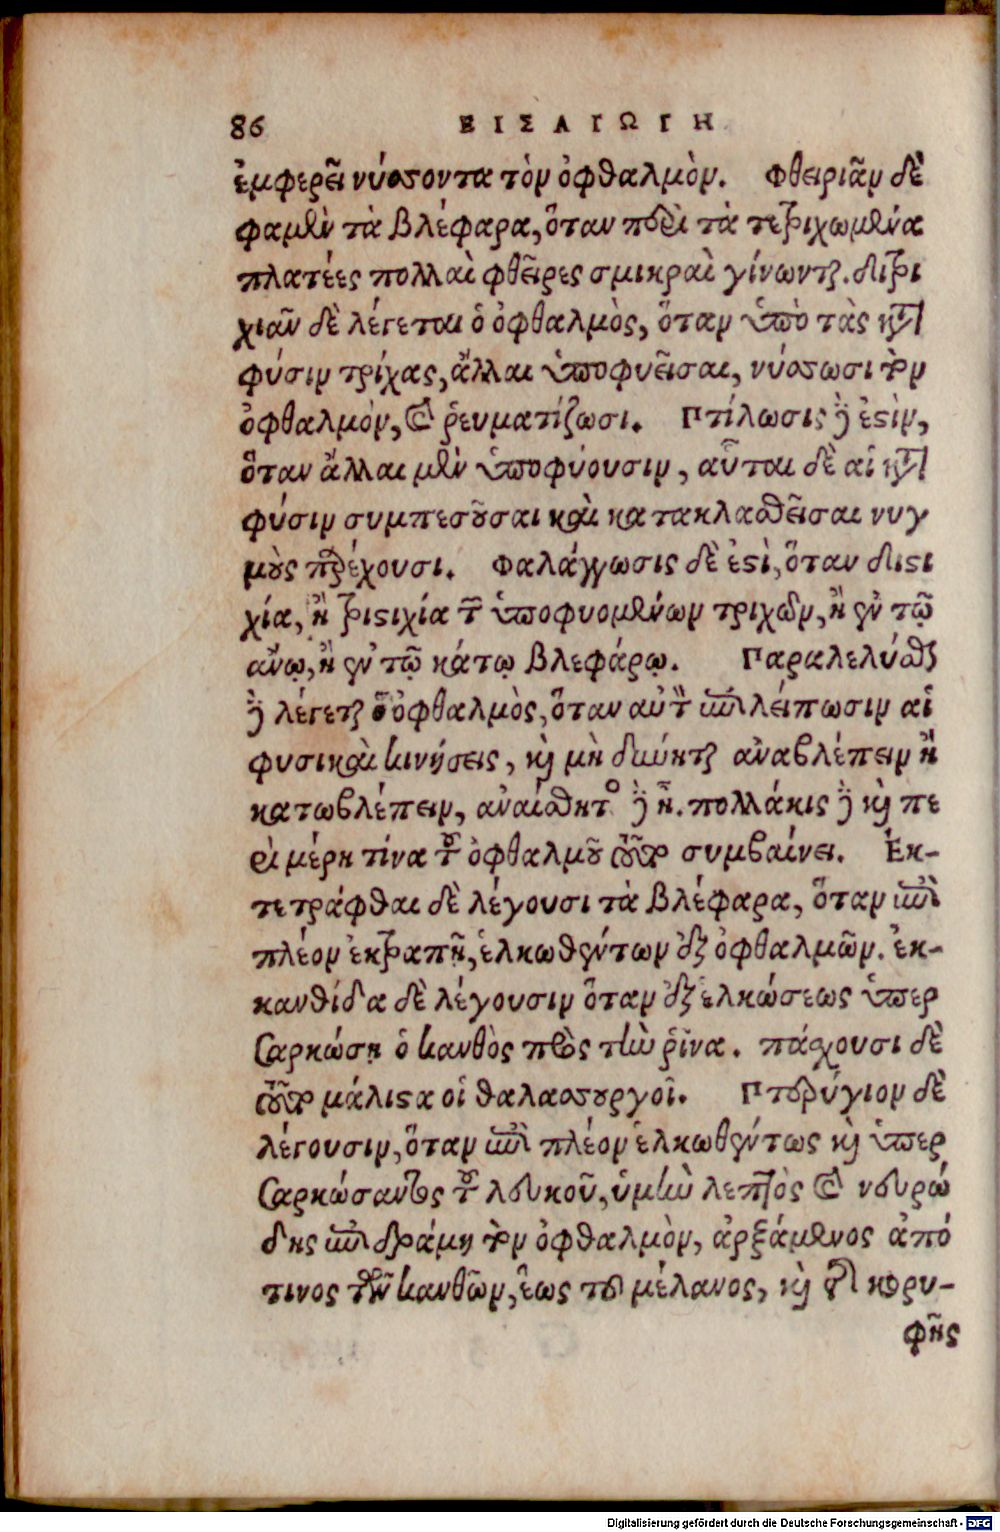 86 ΕΙΣΑΓΩΓΗ
ἐμφερεῖ νύσσοντα τὸν ὀφθαλμὸν. Φθειριᾶν δὲ
φαμὲν τὰ βλέφαρα, ὅταν περὶ τὰ τετριχωμένα
πλατέες πολλαὶ φθεῖρες σμικραὶ γίνωνται. διτρι
χιᾶν δὲ λέγεται ὁ ὀφθαλμὸς, ὅταν ὑπὸ τὰς κατὰ
φύσιν τρίχας, ἄλλαι ὑποφυεῖσαι, νύσσωσι τὸν
ὀφθαλμὸν, καὶ ῥευματίζωσι. Πτίλωσις δέ ἐστιν,
ὅταν ἄλλαι μὲν ὑποφύουσιν, αὗται δὲ αἱ κατὰ
φύσιν συμπεσοῦσαι καὶ κατακλασθεῖσαι νυγ
μοὺς παρέχουσι. Φαλάγγωσις δὲ ἐστὶ, ὅταν διστι
χία, ἢ τριστιχία τῶν ὑποφυομένων τριχῶν, ἢ ἐν τῷ
ἄνω, ἢ ἐν τῷ κάτῳ βλεφάρῳ. Παραλελύσθαι
δὲ λέγεται ὁ ὀφθαλμὸς, ὅταν αὐτὸν ἐπιλείπωσιν αἱ
φυσικαὶ κινήσεις, καὶ μὴ δύνηται ἀναβλέπειν ἢ
κατωβλέπειν, ἀναίσθητος δὲ ᾖ. πολλάκις δὲ καὶ πε
ρὶ μέρη τίνα τοῦ ὀφθαλμοῦ τοῦτο συμβαίνει. Ἐκ-
τετράφθαι δὲ λέγουσι τὰ βλέφαρα, ὅταν ἐπὶ
πλέον ἐκτραπῇ, ἑλκωθέντων τῶν ὀφθαλμῶν. ἐκ-
κανθίδα δὲ λέγουσιν ὅταν ἐξ ἑλκώσεως ὑπερ
σαρκώσῃ ὁ κανθὸς πρὸς τὴν ῥῖνα. πάσχουσι δὲ
τοῦτο μάλιστα οἱ θαλασσουργοῖ. Πτερύγιον δὲ
λέγουσιν, ὅταν ἐπὶ πλέον ἑλκωθέντως καὶ ὑπερ
σαρκώσαντος τοῦ λευκοῦ, ὑμὴν λεπτὸς καὶ νευρώ
δης ἐπιδράμῃ τὸν ὀφθαλμὸν, ἀρξάμενος ἀπό
τινος τῶν κανθῶν, ἕως τοῦ μέλανος, καὶ τῆς κορυ-
φῆς
Digitalisierung gefördert durch die Deutsche Forschungsgemeinschaft - DFG